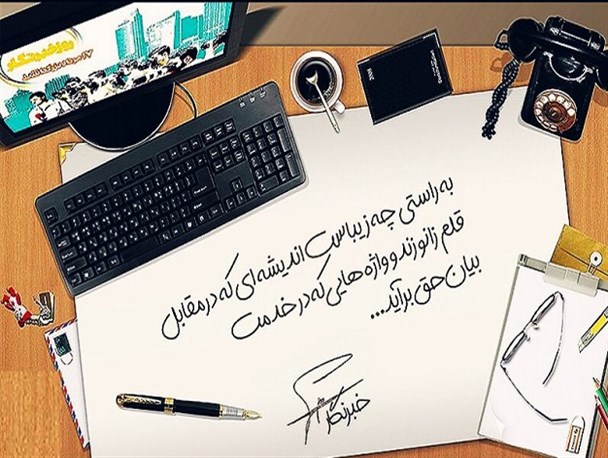 روز خبرنگار
۱۷ مرداد
به راستی چه زیباست اندیشه‌ای که در مقابل
قلم زانو زند و واژه‌هایی که در خدمت
بیان حق برآید...
خبرنگار